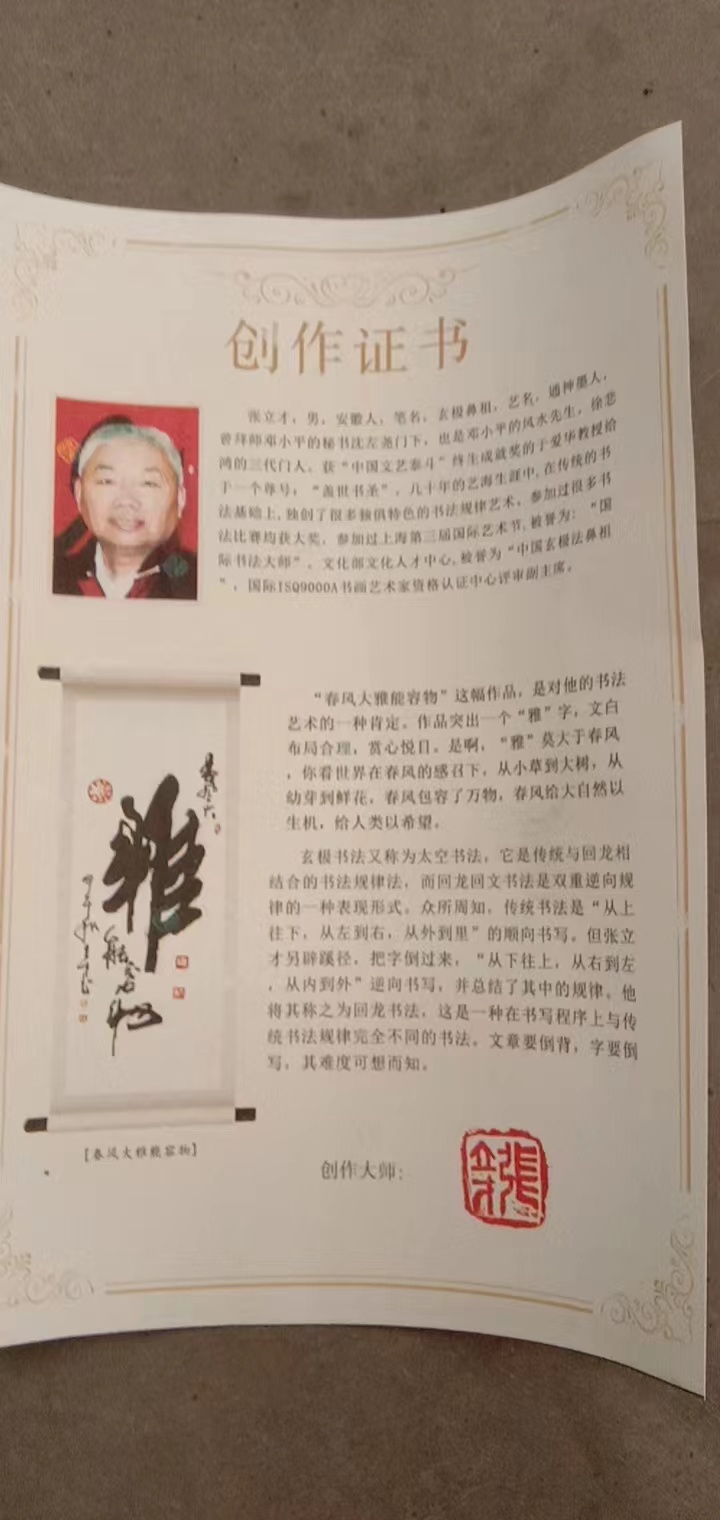 创作证书
张立才，男，安徽人，笔名，玄极鼻祖，艺名，通神墨人，
曾拜师邓小平的秘书沈左尧门下，也是邓小平的风水先生，徐悲
鸿的三代门人。获“中国文艺泰斗”终生成就奖的于爱华教授给
于一个尊号，“盖世书圣”，几十年的艺海生涯中，在传统的书
法基础上，独创了很多独俱特色的书法规律艺术，参加过很多书
法比赛均获大奖，参加过上海第三届国际艺术节，被誉为：“国
际书法大师”，文化部文化人才中心，被誉为“中国玄极法鼻祖
”，国际ISQ9000A书画艺术家资格认证中心评审副主席。
“春风大雅能容物”这幅作品，是对他的书法
艺术的一种肯定。作品突出一个“雅”字，文白
布局合理，赏心悦目。是啊，“雅”莫大于春风
，你看世界在春风的感召下，从小草到大树，从
幼芽到鲜花，春风包容了万物，春风给大自然以
生机，给人类以希望。
玄极书法又称为太空书法，它是传统与回龙相
结合的书法规律法，而回龙回文书法是双重逆向规
律的一种表现形式。众所周知，传统书法是“从上
往下，从左到右，从外到里”的顺向书写。但张立
才另辟蹊径，把字倒过来，“从下往上，从右到左
，从内到外”逆向书写，并总结了其中的规律。他
将其称之为回龙书法，这是一种在书写程序上与传
统书法规律完全不同的书法。文章要倒背，字要倒
写，其难度可想而知。
雅
能容物
[春风大雅能容物]
创作大师：
张立才